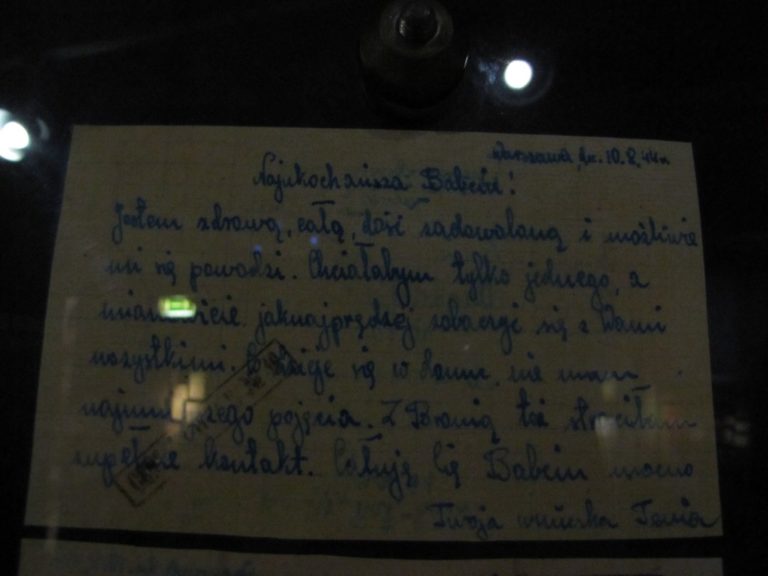 Warszawa, dn. 10.8.44r.
Najukochańsza Babciu!
Jestem zdrową, całą, dość zadowoloną i możliwie
mi się powodzi. Chciałabym tylko jednego, a
mianowicie jaknajprędzej zobaczyć się z Wami
wszystkimi. Co dzieje się w domu, nie mam
najmniejszego pojęcia. Z Bronią też straciłam
zupełnie kontakt. Całuję Cię Babciu mocno
Twoja wnuczka Tenia